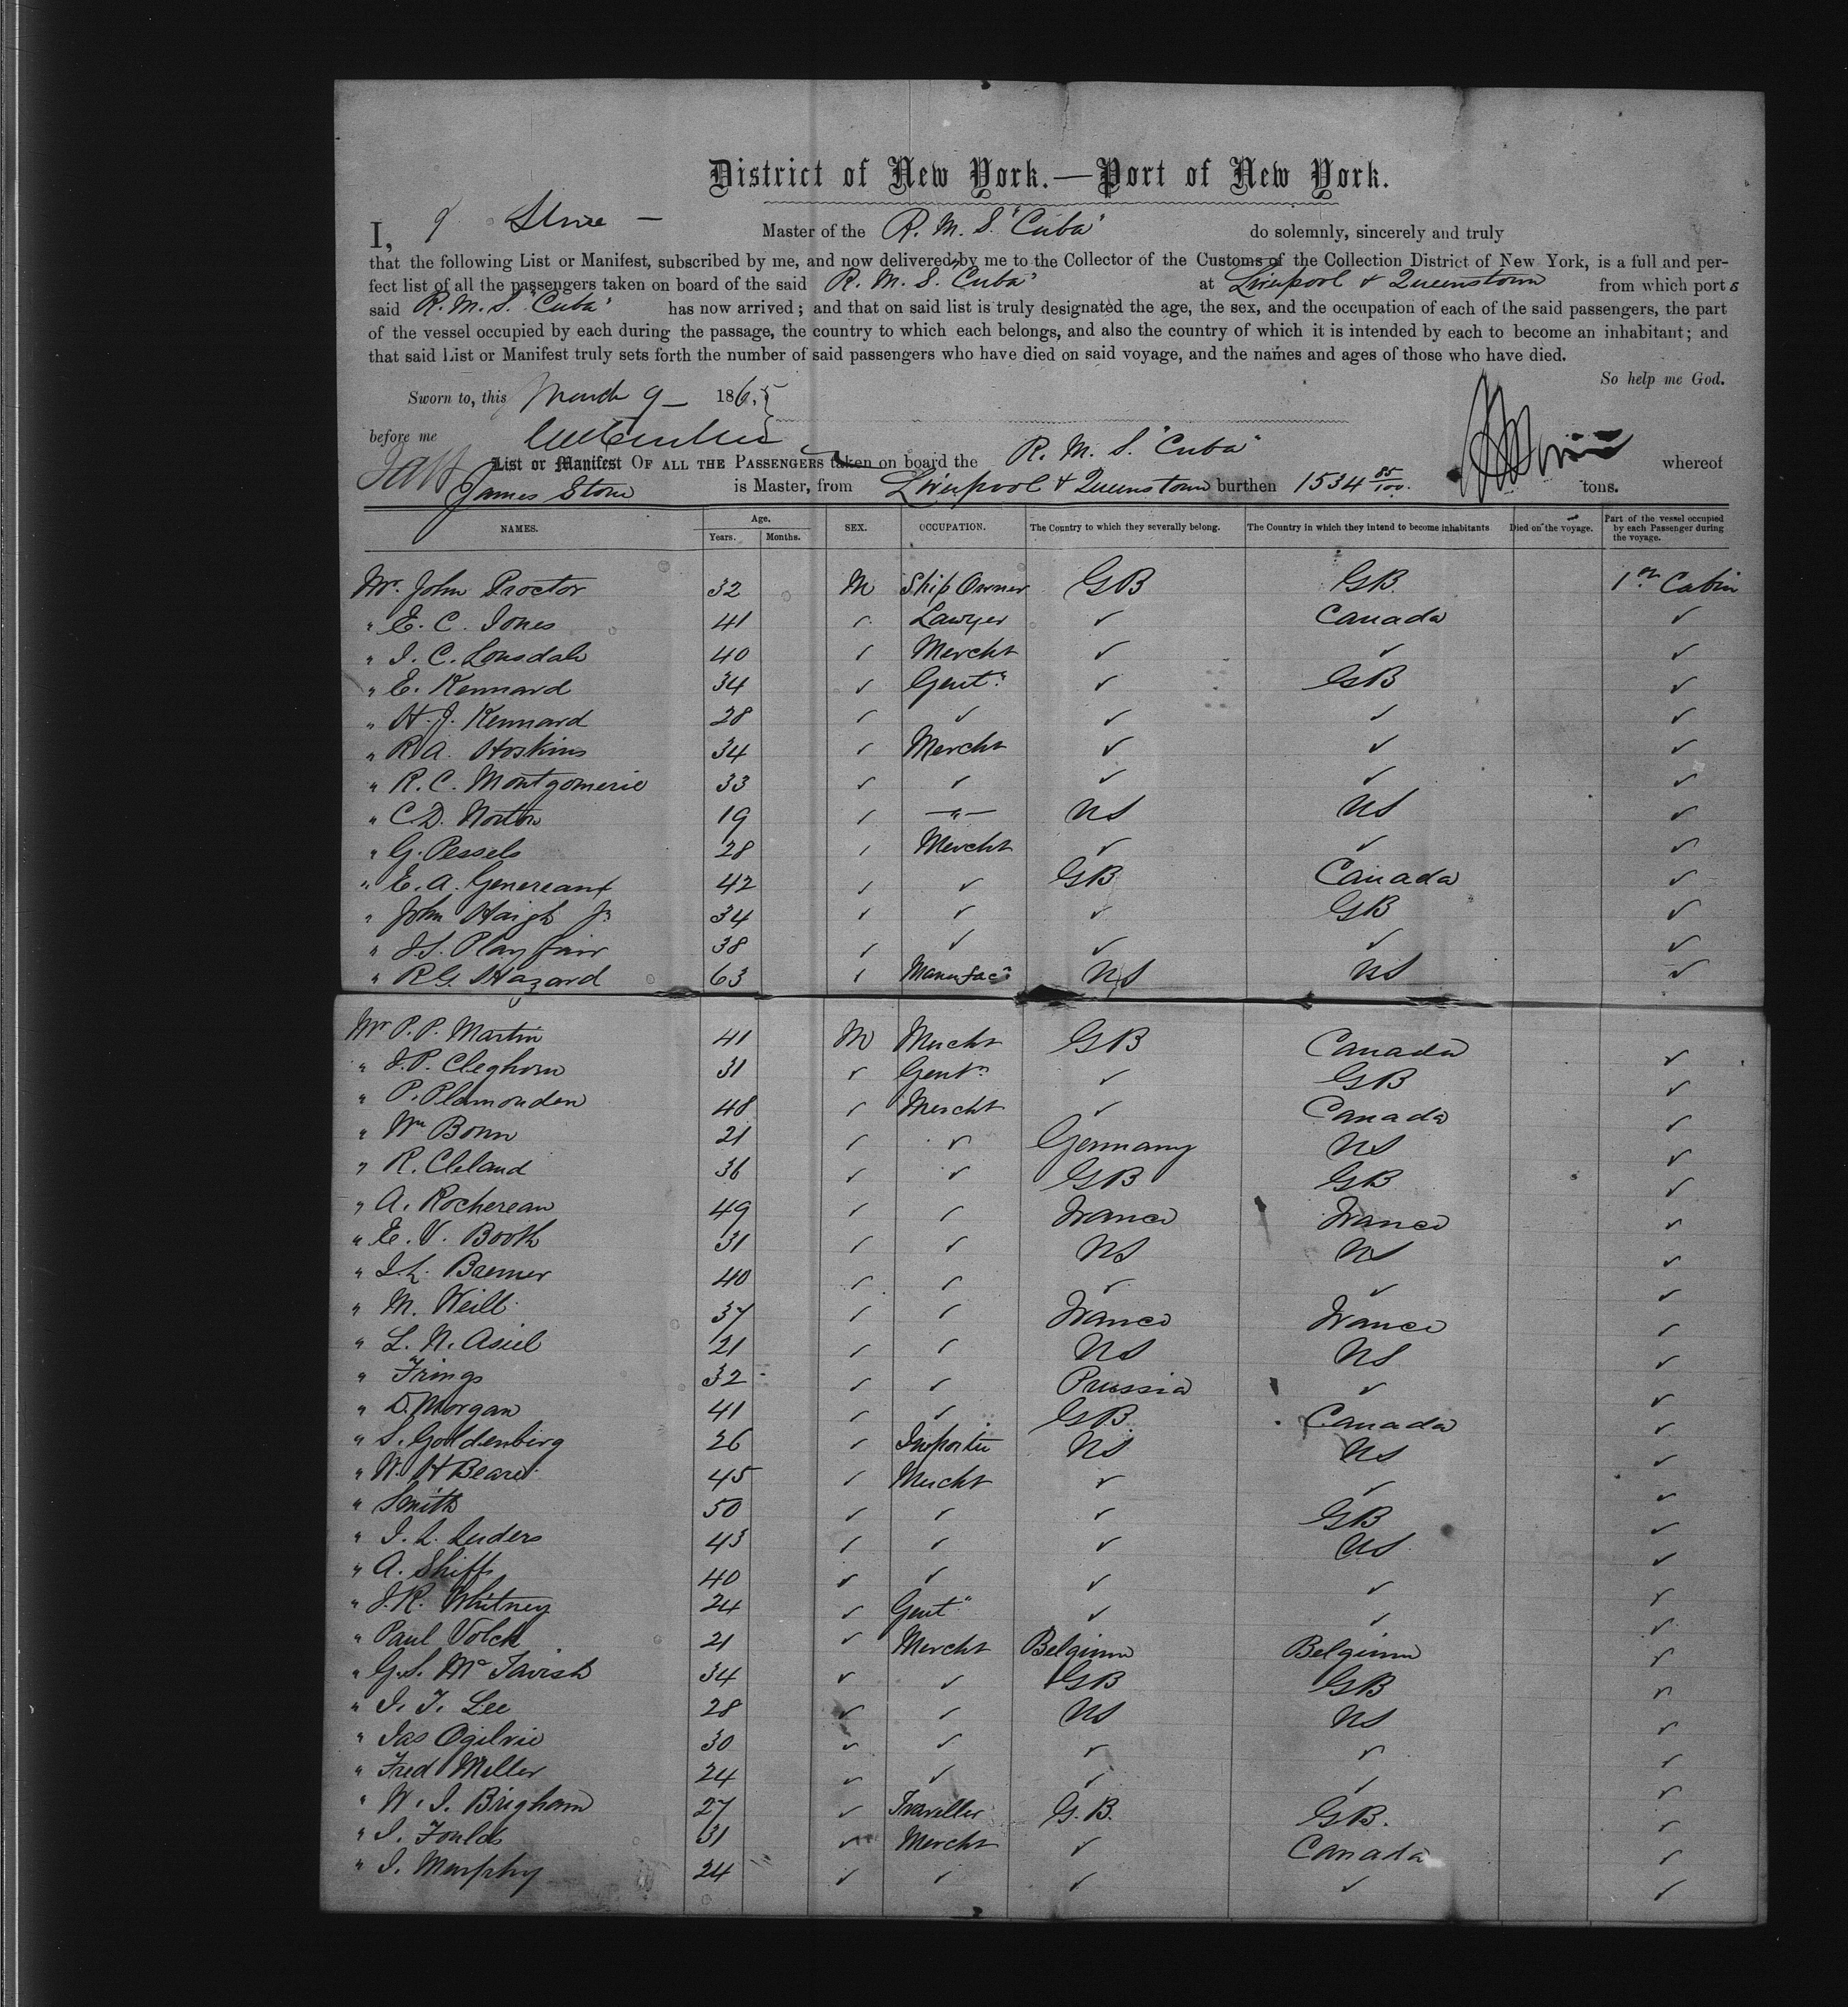 District of New York.—Port of New York.
I, J Stone — Master of the R. M. S. "Cuba" do solemnly, sincerely and truly
that the following List or Manifest, subscribed by me, and now delivered by me to the Collector of the Customs of the Collection District of New York, is a full and per-
fect list of all the passengers taken on board of the said R. M. S. "Cuba" at Liverpool & Queenstown from which port s
said R. M. S. "Cuba" has now arrived; and that on said list is truly designated the age, the sex, and the occupation of each of the said passengers, the part
of the vessel occupied by each during the passage, the country to which each belongs, and also the country of which it is intended by each to become an inhabitant; and
that said List or Manifest truly sets forth the number of said passengers who have died on said voyage, and the names and ages of those who have died.
So help me God.
Sworn to, this March 9 — 1865
before me
List or Manifest OF ALL THE PASSENGERS taken on board the R. M. S. "Cuba" whereof
James Stone is Master, from Liverpool & Queenstown burthen 1534 85/100 tons.
NAMES. Age. Years. Months. SEX. OCCUPATION. The Country to which they severally belong. The Country in which they intend to become inhabitants Died on the voyage. Part of the vessel occupied by each Passenger during the voyage.
Mr. John Proctor 32 M Ship Owner GB GB. 1st Cabin
" E. C. Jones 41 ✓ Lawyer ✓ Canada ✓
" J. C. Lonsdale 40 ✓ Mercht ✓ ✓ ✓
" E. Kennard 34 ✓ Gent" ✓ GB ✓
" H. J. Kennard 28 ✓ ✓ ✓ ✓ ✓
" R A. Hoskins 34 ✓ Mercht ✓ ✓ ✓
" R. C. Montgomerie 33 ✓ ✓ ✓ ✓ ✓
" C D. Norton 19 ✓ —"— US US ✓
" G. Pessels 28 ✓ Mercht ✓ ✓ ✓
" E. A. Genereaux 42 ✓ ✓ GB Canada ✓
" John Haigh Jr 34 ✓ ✓ ✓ GB ✓
" J. S. Playfair 38 ✓ ✓ ✓ ✓ ✓
" R G. Hazard 63 ✓ Manufacr US US ✓
Mr P. P. Martin 41 M Mercht GB Canada ✓
" J. P. Cleghorn 31 ✓ Gentn ✓ GB ✓
" P. Plamonden 48 ✓ Mercht ✓ Canada ✓
" Wm Bonn 21 ✓ ✓ Germany US ✓
" R. Cleland 36 ✓ ✓ GB GB ✓
" A. Rochereau 49 ✓ ✓ France France ✓
" E. V. Booth 31 ✓ ✓ US US ✓
" J. L. Baemer 40 ✓ ✓ ✓ ✓ ✓
" M. Weill 37 ✓ ✓ France France ✓
" L. N. Asiel 21 ✓ ✓ US US ✓
" Frings 32 ✓ ✓ Prussia ✓ ✓
" D. Morgan 41 ✓ ✓ GB. Canada ✓
" S. Goldenberg 26 ✓ Importer US US ✓
" W. H Beard 45 ✓ Mercht ✓ ✓ ✓
" Smith 50 ✓ ✓ ✓ GB ✓
" J. L. Luders 43 ✓ ✓ ✓ US ✓
" A. Shiff 40 ✓ ✓ ✓ ✓ ✓
" J. R. Whitney 24 ✓ Gent" ✓ ✓ ✓
" Paul Volck 21 ✓ Mercht Belgium Belgium ✓
" G. S. McTavish 34 ✓ ✓ GB GB ✓
" J. T. Lee 28 ✓ ✓ US US ✓
" Jas Ogilvie 30 ✓ ✓ ✓ ✓ ✓
" Fred Miller 24 ✓ ✓ ✓ ✓ ✓
" W. J. Brigham 27 ✓ Traveller G. B. GB. ✓
" J. Foulds 31 ✓ Mercht ✓ Canada ✓
" J. Murphy 24 ✓ ✓ ✓ ✓ ✓